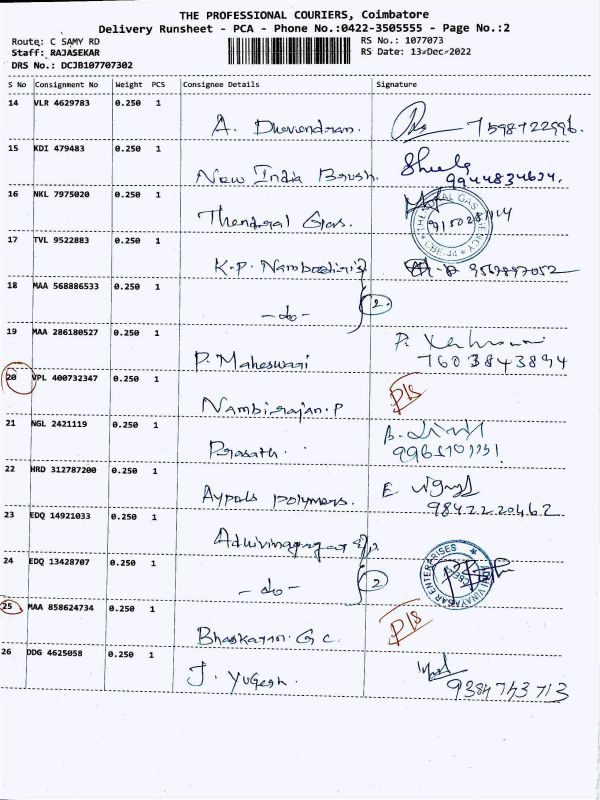 THE PROFESSIONAL COURIERS, Coimbatore
Delivery Runsheet - PCA - Phone No.:0422-3505555 - Page No.:2
Route: C SAMY RD
RS No.: 1077073
Staff: RAJASEKAR
RS Date: 13-Dec-2022
DRS No.: DCJB107707302
S No Consignment No Weight PCS Consignee Details Signature
14 VLR 4629783 0.250 1
A. Dhevendran. 7598722996.
15 KDI 479483 0.250 1
New India Brush. Sheela
9944834634.
16 NKL 7975020 0.250 1
Thendral Gas.
17 TVL 9522883 0.250 1
K.P. Namboodiri's
18 MAA 568886533 0.250 1
- do - 2.
19 MAA 286180527 0.250 1
P. Maheswari 7603843894
20 VPL 400732347 0.250 1
Nambirajan.P
21 NGL 2421119 0.250 1
Prasath.
22 HRD 312787200 0.250 1
Aypols polymers. E
98422 20462
23 EDQ 14921033 0.250 1
24 EDQ 13428707 0.250 1
- do - 2
25 MAA 858624734 0.250 1
Bhaskaran. G C.
26 DDG 4625058 0.250 1
J. Yugesh. 9384743713